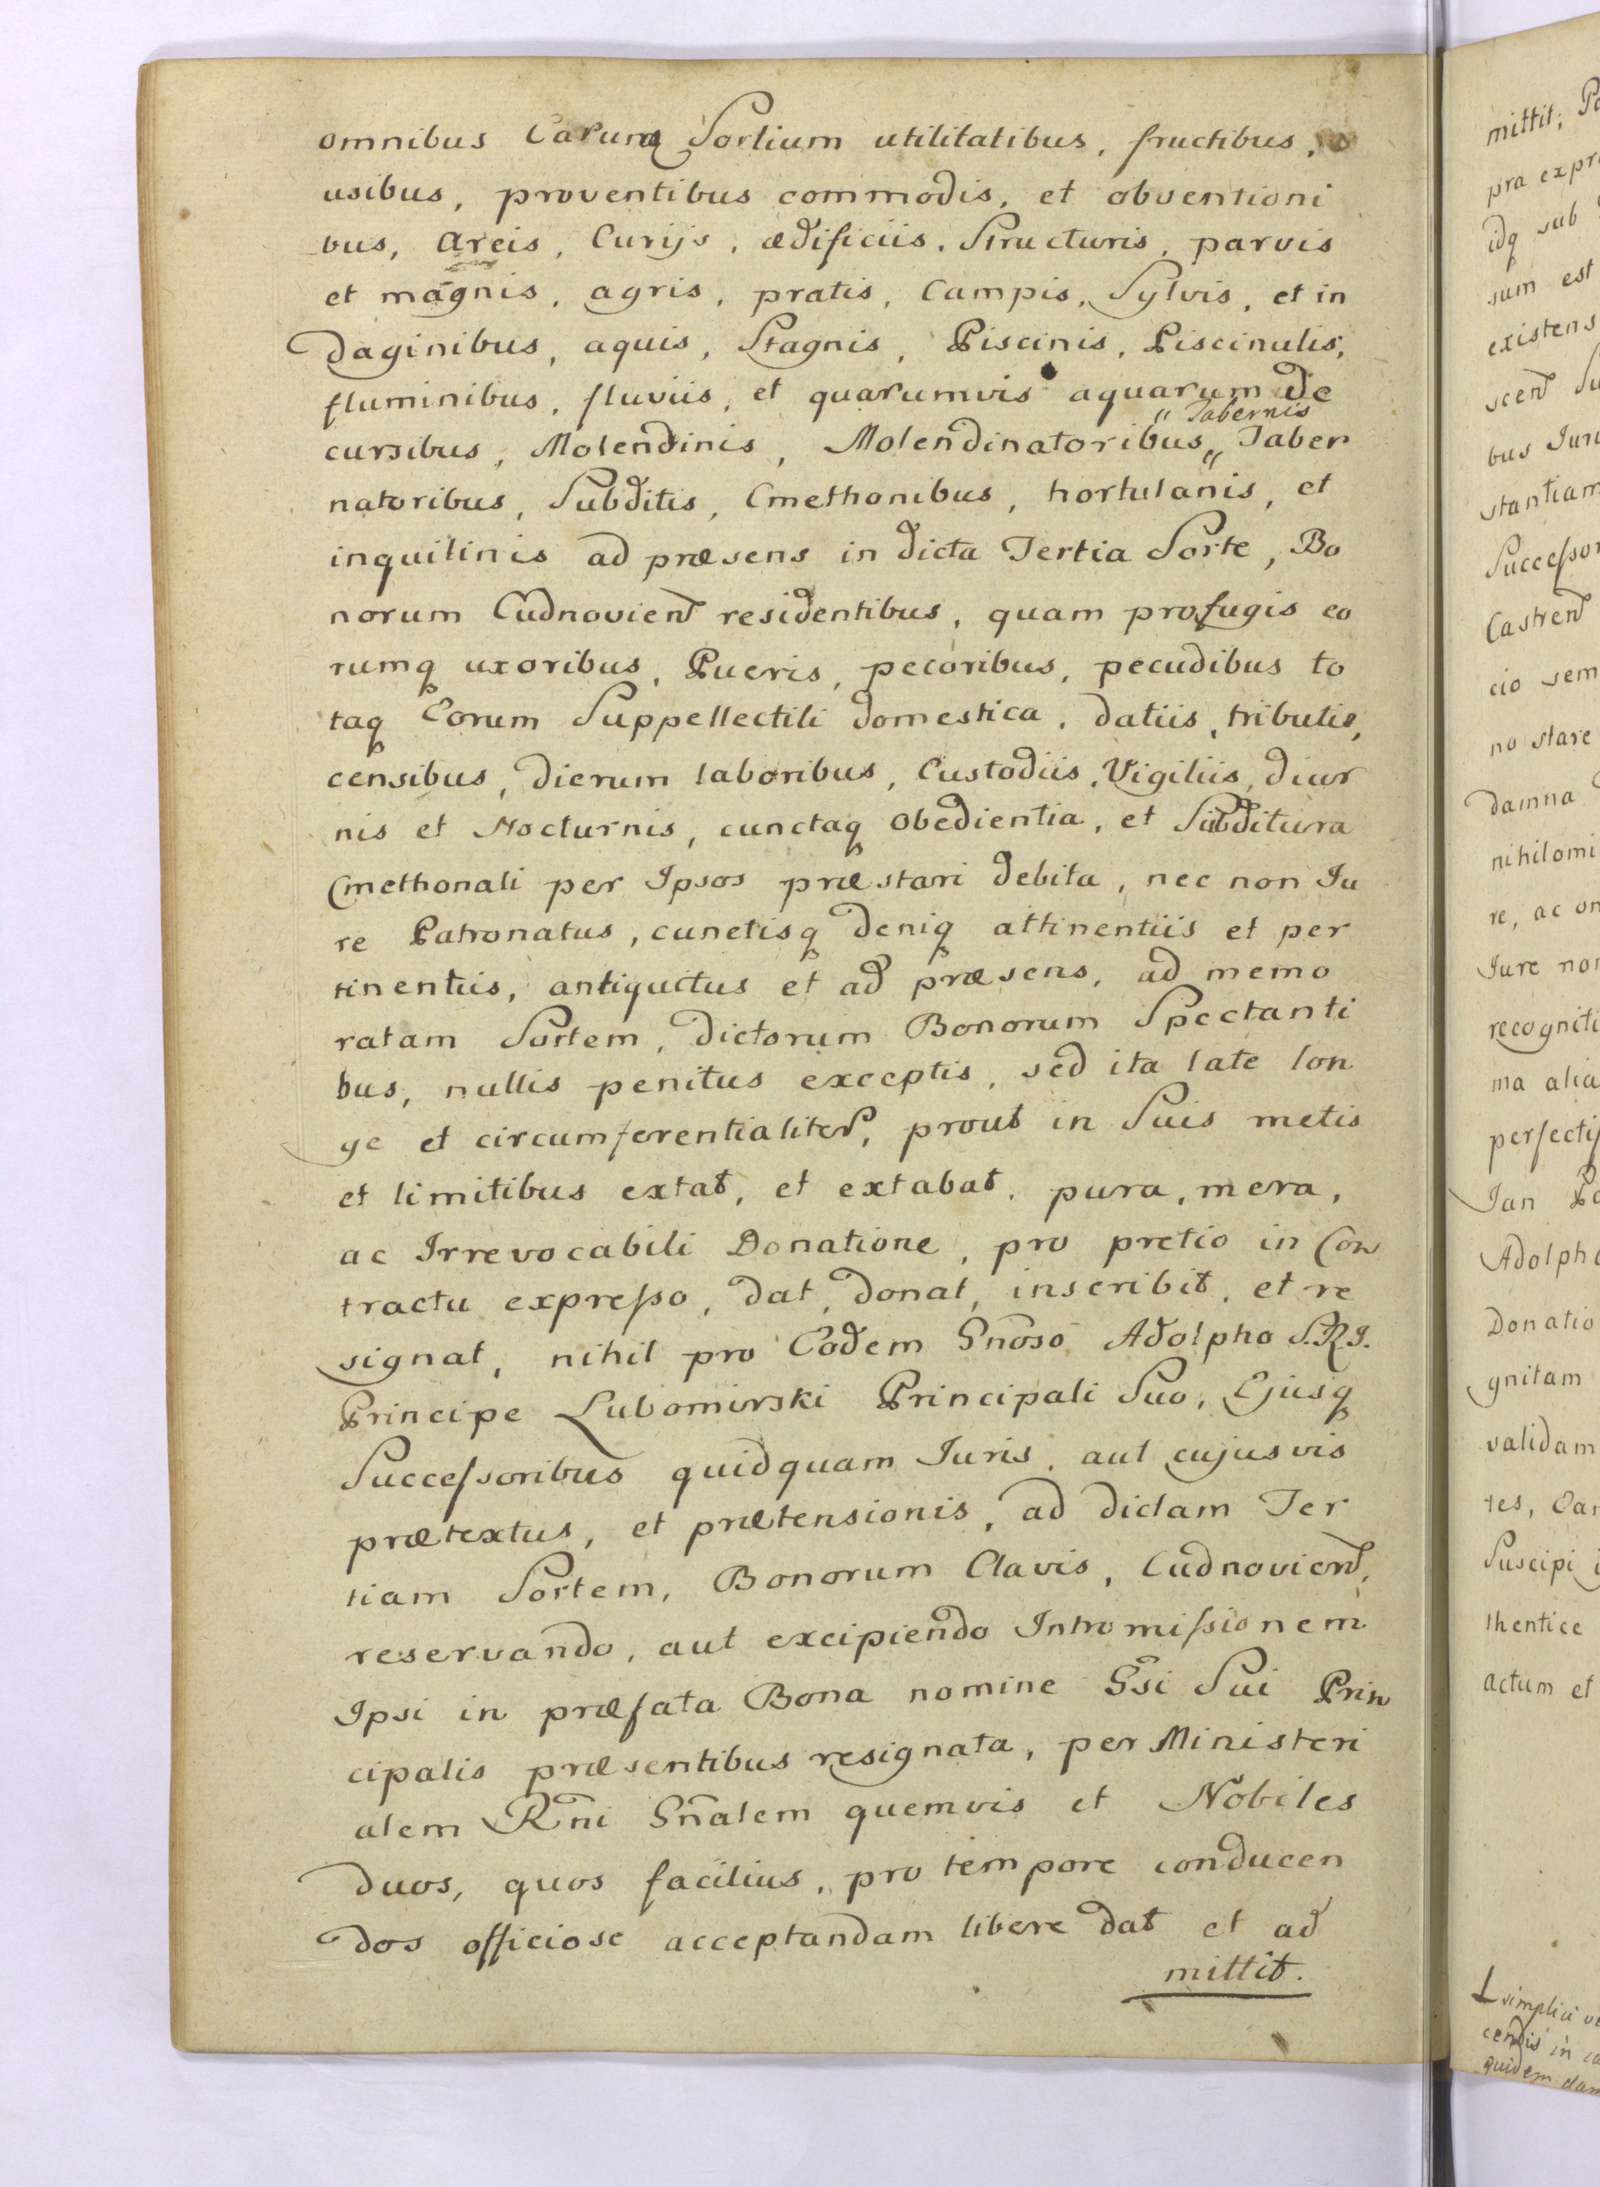 omnibus Earumq Sortium utilitatibus, fructibus,
usibus, proventibus commodis, et obventioni
bus, areis, Curijs, ædificiis, Structuris, parvis
et magnis, agris, pratis, Campis, Sylvis, et in
daginibus, aquis, Stagnis, Piscinis, Piscinulis,
fluminibus, fluviis, et quarumvis aquarum de
" Tabernis
cursibus, Molendinis, Molendinatoribus " Taber
natoribus, Subditis, Cmethonibus, hortulanis, et
inquilinis ad præsens in dicta Tertia Sorte, Bo
norum Cudnovien residentibus, quam profugis eo
rumq uxoribus, Pueris, pecoribus, pecudibus to
taq Eorum Suppellectili domestica, datiis, tributis,
censibus, dierum laboribus, Custodiis, Vigiliis, diur
nis et Nocturnis, cunctaq obedientia, et Subditura
Cmethonali per Ipsos præstari debita, nec non Iu
re Patronatus, cunctisq deniq attinentiis et per
tinentiis, antiquitus et ad præsens, ad memo
ratam Sortem, dictorum Bonorum Spectanti
bus, nullis penitus exceptis, sed ita late lon
ge et circumferentialiter, prout in Suis metis
et limitibus extat, et extabat, pura, mera,
ac Irrevocabili Donatione, pro pretio in Con
tractu expresso, dat, donat, inscribit, et re
signat, nihil pro Eodem Gnoso Adolpho S.R.I.
Principe Lubomirski Principali Suo, Ejusq
Successoribus quidquam Iuris, aut cujusvis
prætextus, et prætensionis, ad dictam Ter
tiam Sortem, Bonorum Clavis, Cudnovien,
reservando, aut excipiendo Intromissionem
Ipsi in præfata Bona nomine Gsi Sui Prin
cipalis præsentibus resignata, per Ministeri
alem Rni Gnalem quemvis et Nobiles
duos, quos facilius, pro tempore conducen
dos officiose acceptandam libere dat et ad
mittit.
mittit; 
pra expr
idq sub
sum est
existens
scen Su
bus Iuri
stantiam
Successor
Castren
cio sem
no stare
damna
nihilomi
re, ac om
Iure non
recogniti
ma alia
perfectis
Ian
Adolpho
Donatio
gnitam
validam
tes, Ean
Suscipi
thentice
actum et
simplici
cendis in
quidem dam